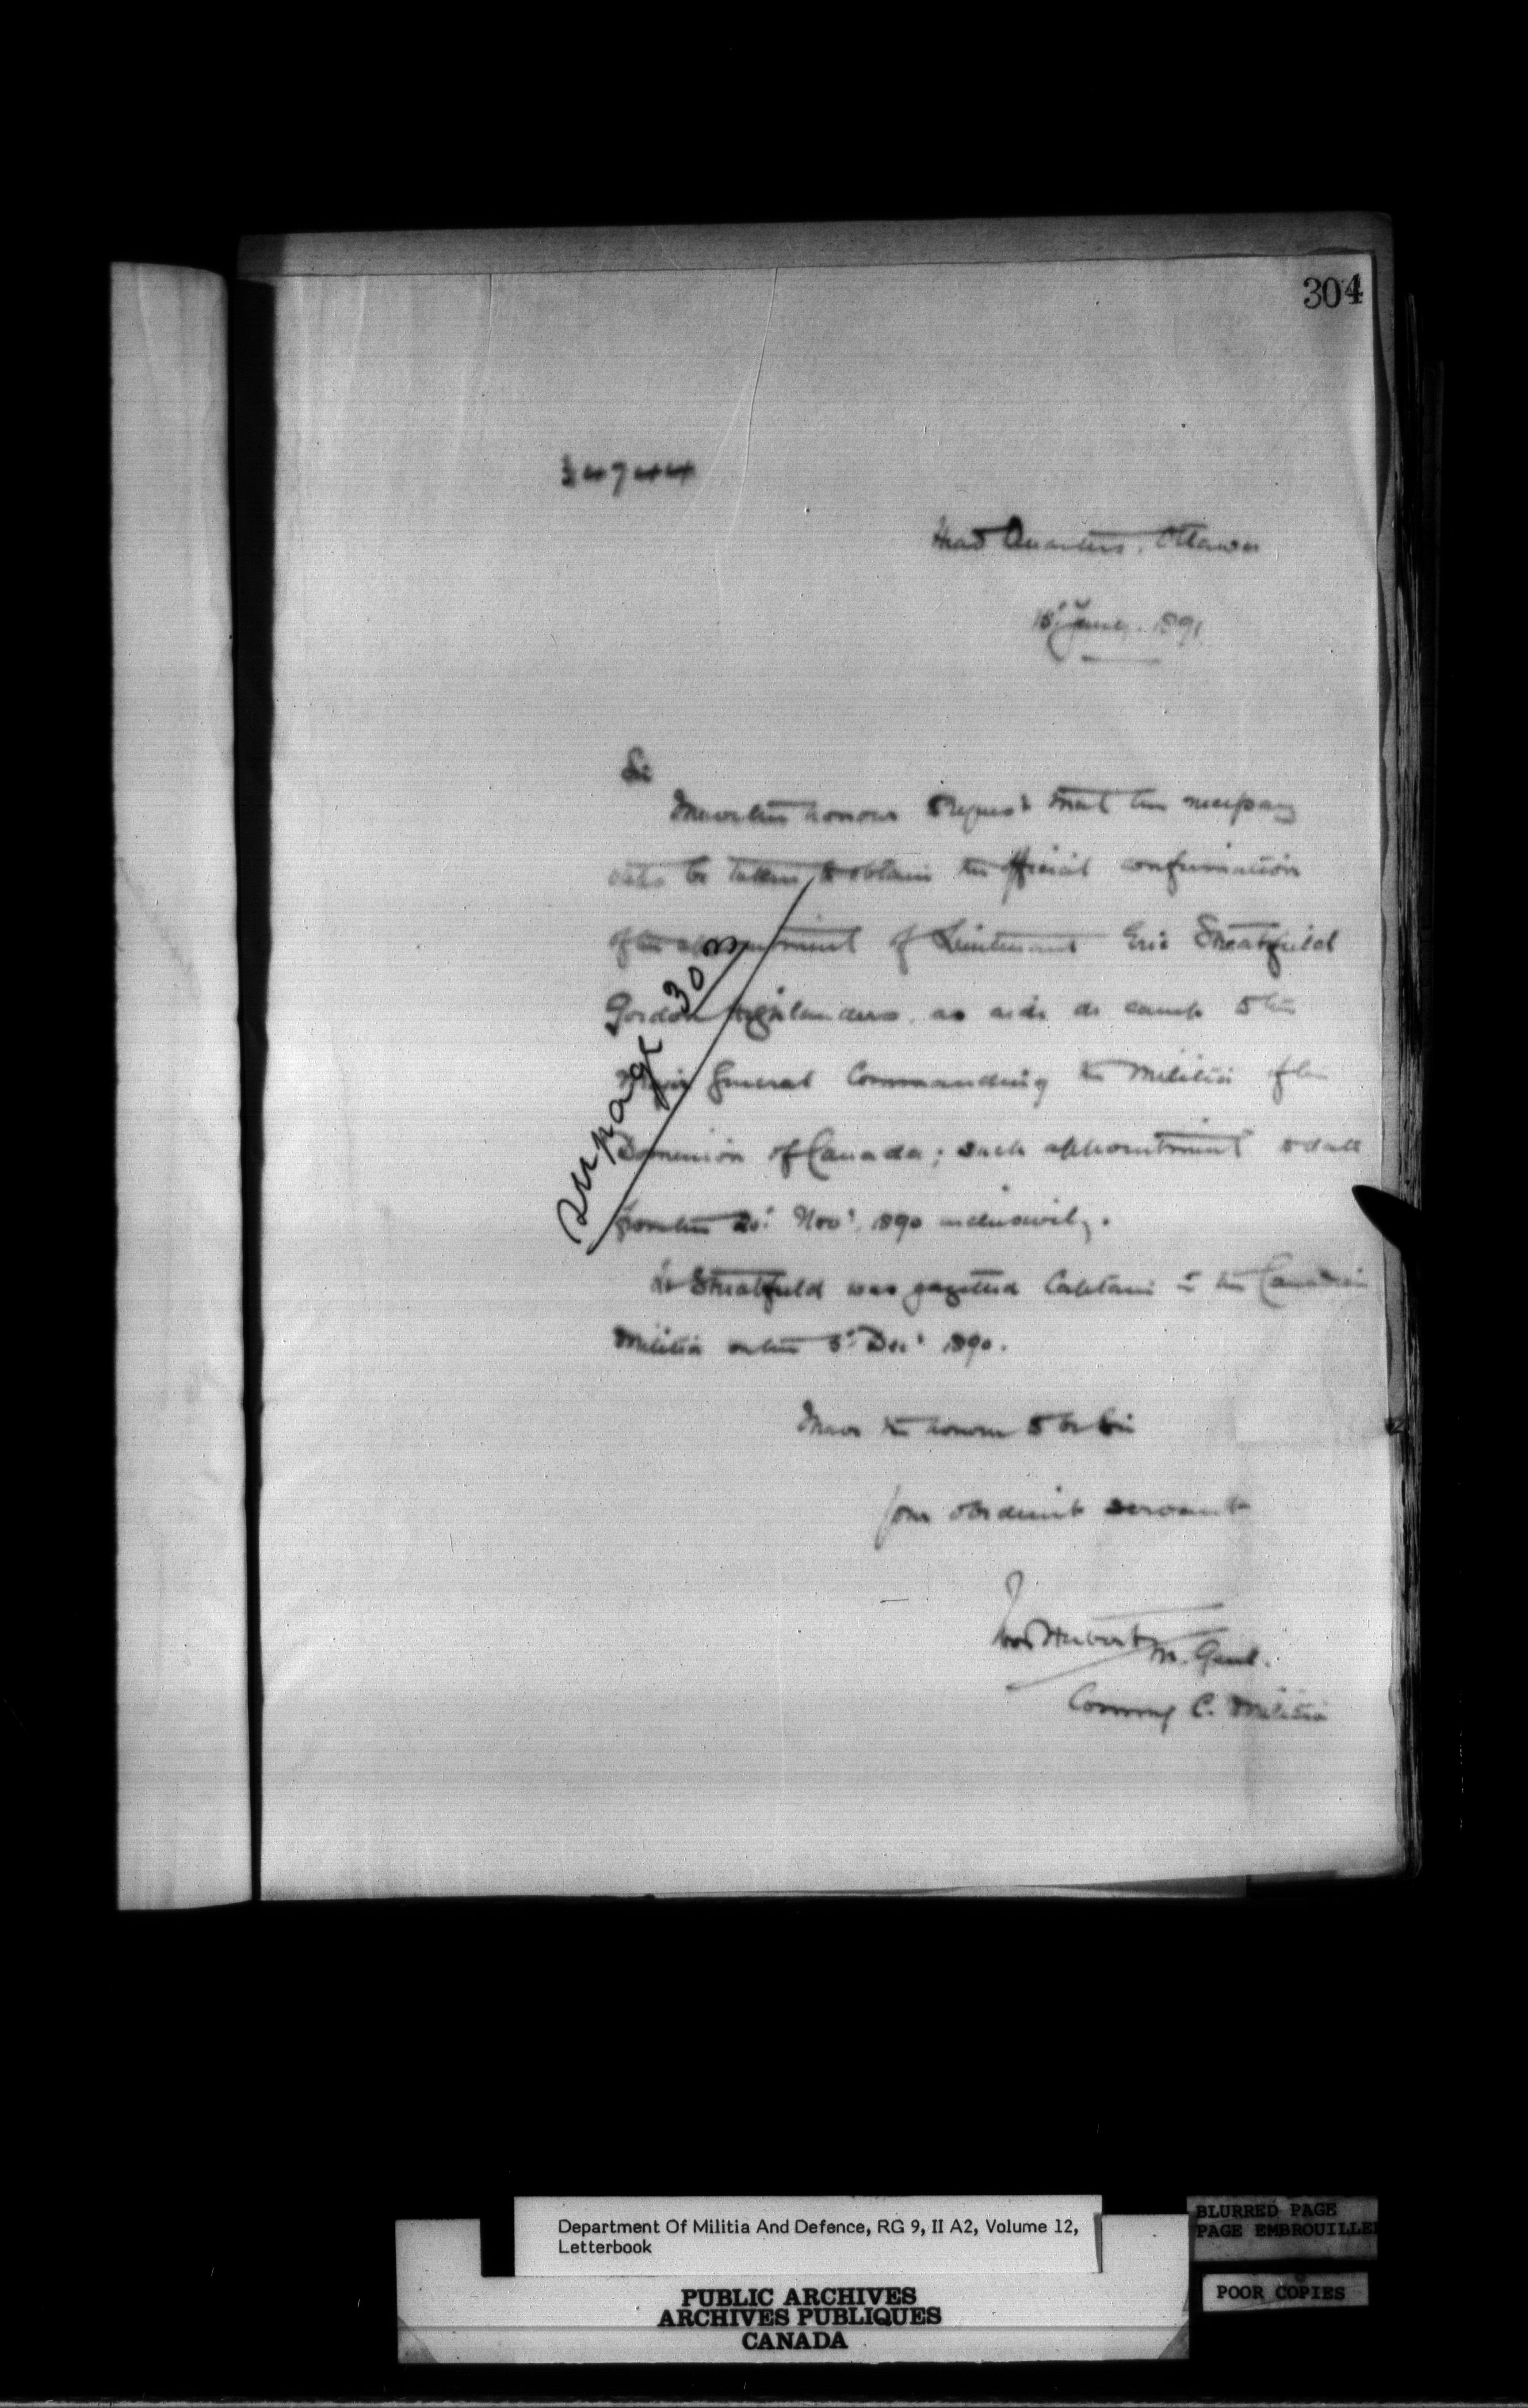 304
34744
Head Quarters, Ottawa
15th Jany. 1891
Sir
I have the honour to request that the necessary
steps be taken to obtain the official confirmation
of the appointment of Lieutenant Eric Streatfeild
Gordon Highlanders, as aide de camp to the
Major General Commanding the Militia of the
Dominion of Canada; such appointment to date
from the 20th Novr. 1890 inclusively.
Lt Streatfeild was gazetted Captain in the Canadian
Militia on the 5th Decr 1890.
I have the honour to be Sir
your obedient servant
Ivor Herbert M. Genl.
Commg C. Militia
see page 308
Department Of Militia And Defence, RG 9, II A2, Volume 12,
Letterbook
PUBLIC ARCHIVES
ARCHIVES PUBLIQUES
CANADA
BLURRED PAGE
PAGE EMBROUILLE
POOR COPIES